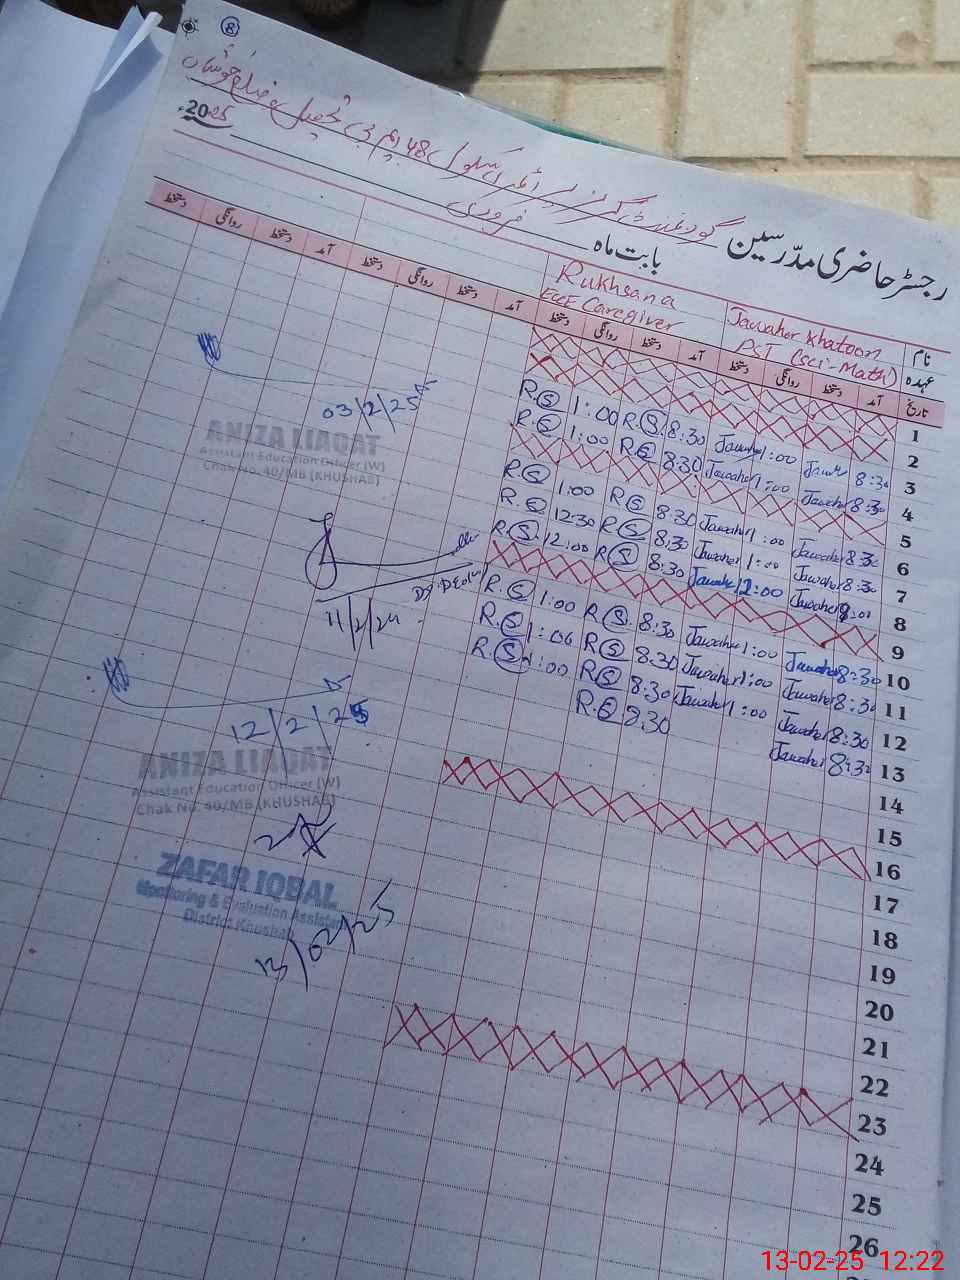 8
گورنمنٹ گرلز پرائمری سکول 48 ایم بی تحصیل و ضلع خوشاب
2025ء
رجسٹر حاضری مدرّسین بابت ماہ فروری
نام Jawaher Khatoon Rukhsana
عہدہ PST (Sci-Math) ECCE Caregiver
تاریخ آمد دستخط روانگی دستخط آمد دستخط روانگی دستخط آمد دستخط روانگی دستخط آمد دستخط روانگی دستخط
1
2
3 8:30 1:00 Jawaher 8:30 R.S 1:00 R.S
4 8:30 Jawaher 1:00 Jawaher 8:30 R.S 1:00 R.S
5
6 8:30 Jawaher 1:00 Jawaher 8:30 R.S 1:00 R.S
7 8:30 Jawaher 1:00 Jawaher 8:30 R.S 12:30 R.S
8 Jawaher 12:00 Jawaher 8:30 R.S 12:00 R.S
9
10 8:30 Jawaher 1:00 Jawaher 8:30 R.S 1:00 R.S
11 8:30 Jawaher 1:00 Jawaher 8:30 R.S 1:00 R.S
12 8:30 Jawaher 1:00 Jawaher 8:30 R.S 1:00 R.S
13 8:30 Jawaher 8:30 R.S
14
15
16
17
18
19
20
21
22
23
24
25
26
03/2/25
ANIZA LIAQAT
Assistant Education Officer (W)
Chak No. 40/MB (KHUSHAB)
11/2/24
12/2/25
ANIZA LIAQAT
Assistant Education Officer (W)
Chak No. 40/MB (KHUSHAB)
ZAFAR IQBAL
Monitoring & Evaluation Assistant
District Khushab
13/02/25
13-02-25 12:22